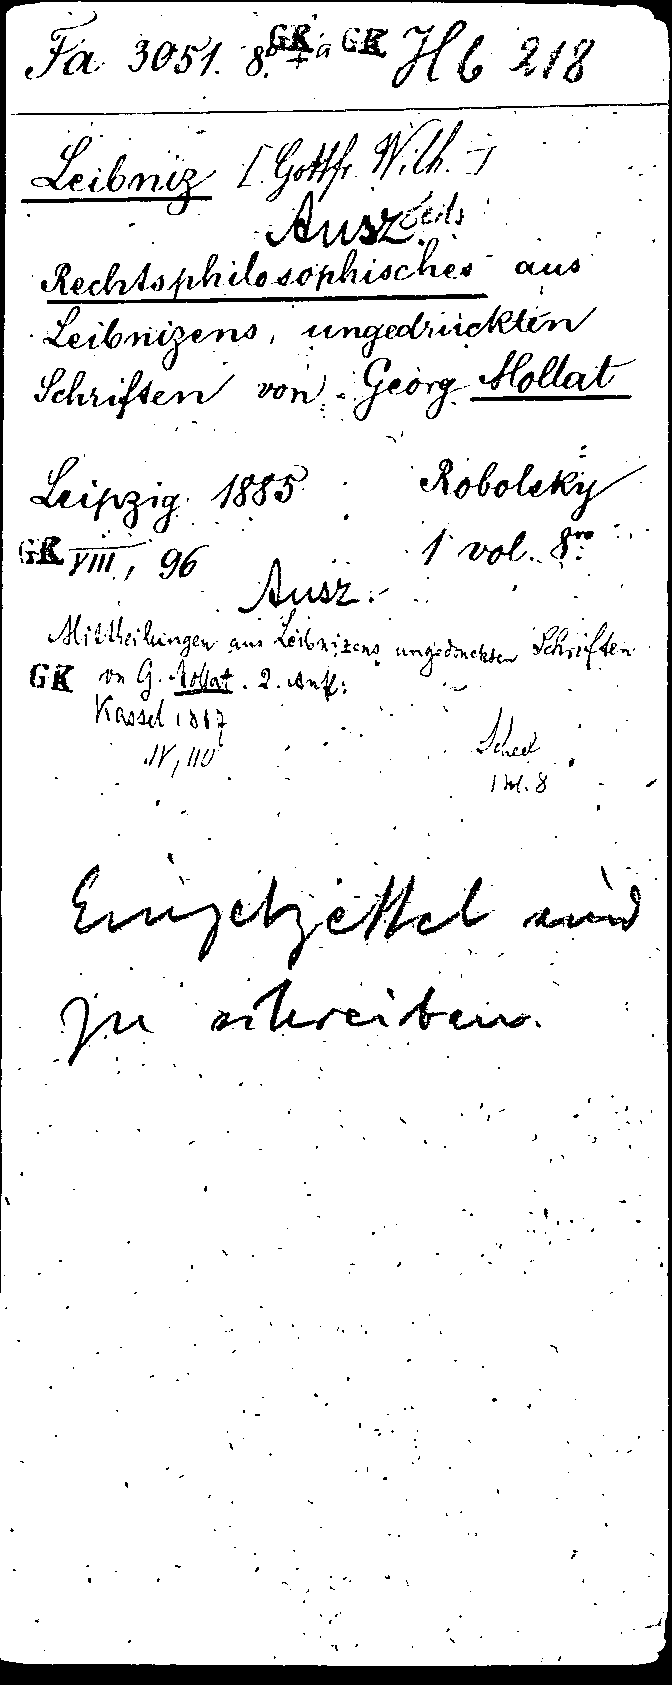 Fa 3051. 8º + a GK GK Hb 218
Leibniz [Gottfr. Wilh.]
Ausz.
Rechtsphilosophisches aus
Leibnizens, ungedruckten
Schriften von Georg Mollat
Leipzig 1885 Robolsky
GK VIII, 96 1 vol. 8vo
Ausz.
Mittheilungen aus Leibnizens ungedruckten Schriften
GK von G. Mollat. 2. Aufl:
Kassel 1887
IV, 110
1 vol. 8
Einsetzzettel sind
zu schreiben.